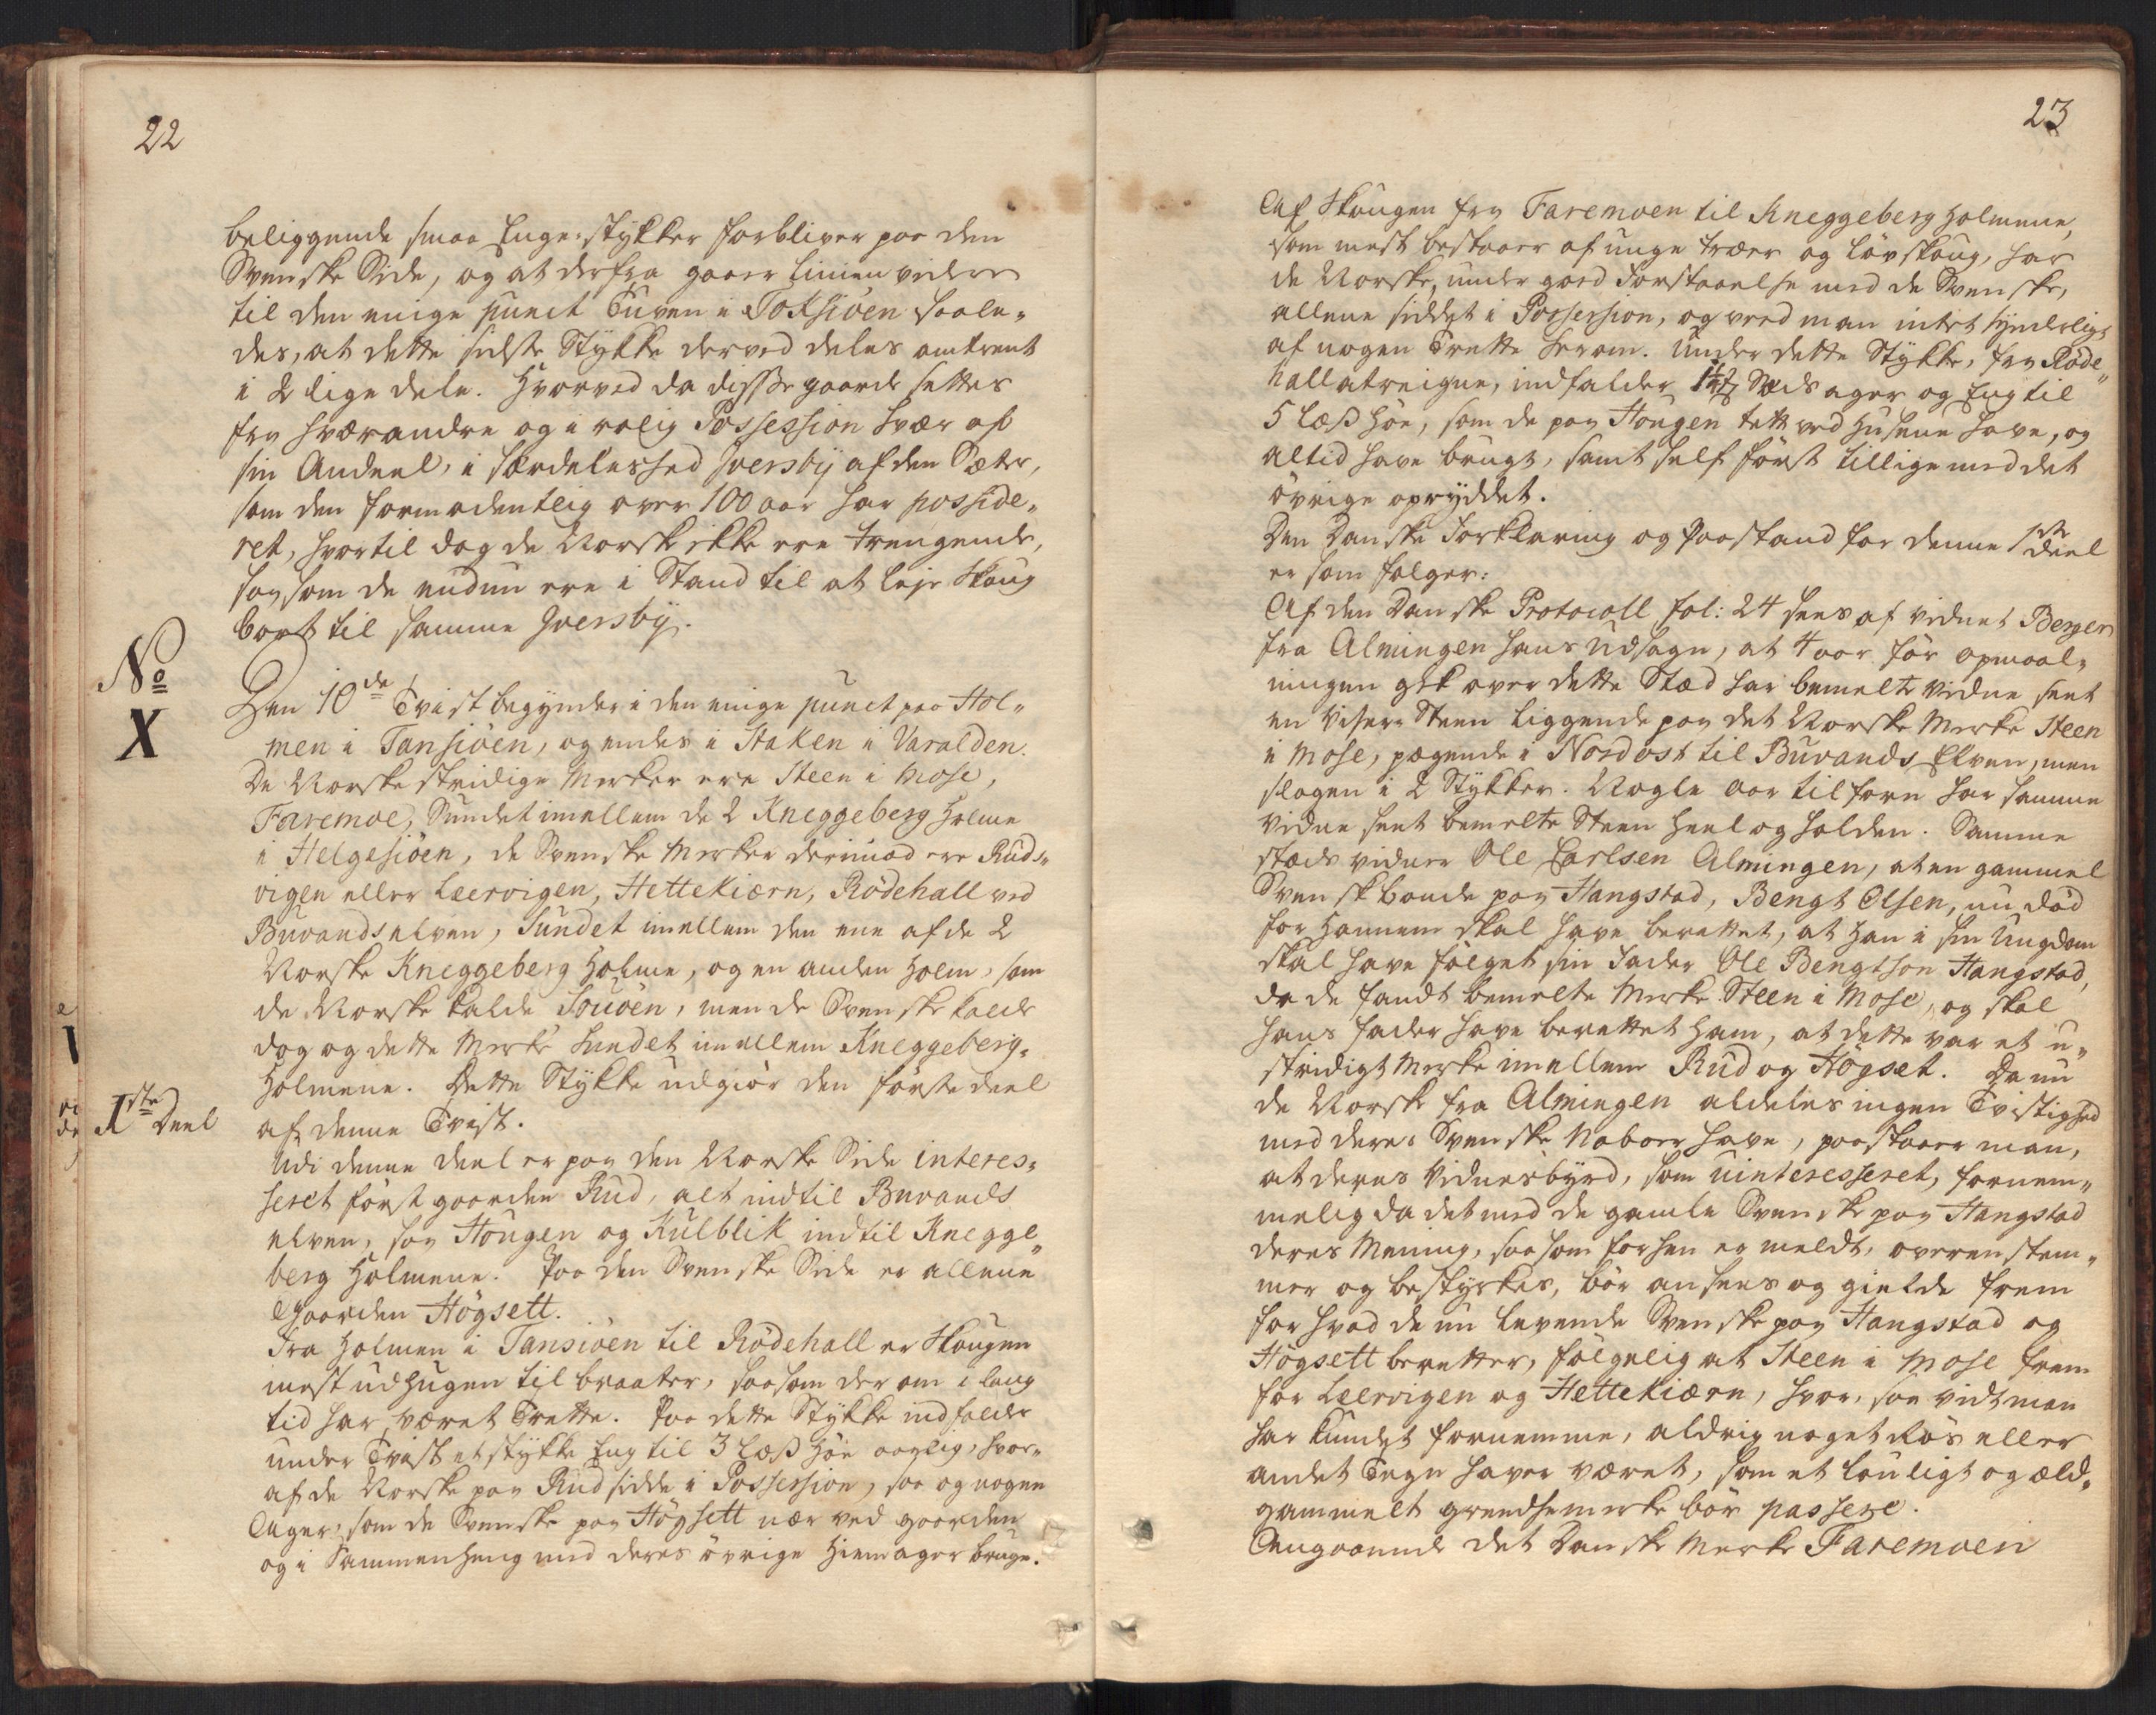 22
beliggende smaa Enge-stykker forbliver paa den
Svenske Side, og at derfra gaaer Linien videre
til den enige punct Tuven i Toksiöen saale-
des, at dette sidste Stykke derved deles omtrent
i 2 lige dele. Hvorved da disse gaarde settes
fra hverandre og i rolig Possession hver af
sin Andeel, i særdeleshed Jversbÿ af den Sæter,
som den formodentlig over 100 aar har posside-
ret, hvortil dog de Norske ikke ere trengende,
saasom de endnu ere i Stand til at leje Skoug
bort til samme Jversbÿ.
No
X
Den 10de Tvist begynder i den enige punct paa Hol-
men i Tansiöen, og endes i Staken i Varalden.
De Norske stridige Merker ere Steen i Mose,
Faremoe, Sundet imellem de 2 Kneggeberg Holme
i Helgesiöen, de Svenske Merker derimod ere Ruds-
vigen eller Leervigen, Hettekiærn, Rödehall ved
Buvandselven, Sundet imellem den ene af de 2
Norske Kneggeberg Holme, og en anden Holm, som
de Norske kalde Souöen, men de Svenske kalde
dog og dette Merke Sundet imellem Kneggeberg-
Holmene. Dette Stykke udgiör den förste deel
af denne Tvist.
1ste Deel
Udi denne deel er paa den Norske Side interes-
seret först gaarden Rud, alt indtil Buvands
elven, saa Hougen og Kulblik indtil Knegge-
berg Holmene. Paa den Svenske Side er allene
Gaarden Högsett.
Fra Holmen i Tansiöen til Rödehall er Skougen
mest udhugen til braater, saasom der om i lang
tid har været Trette. Paa dette Stykke indfalder
under Tvist et stykke Eng til 3 Læs Höe aarlig, hvor-
af de Norske paa Rud sidde i Possession, saa og nogen
Ager, som de Svenske paa Högsett nær ved gaarden
og i Sammenheng med deres övrige Hiemager bruge.
23
Af Skougen fra Faremoen til Kneggeberg Holmene,
som mest bestaaer af unge Træer og Lövskoug, har
de Norske, under goed Forstaaelse med de Svenske,
allene siddet i Possession, og veed man intet synderligt
af nogen Trette herom. Under dette Stykke, fra Röde-
hall at reigne, indfalder Sæds ager og Eng til
5 Læs Höe, som de paa Hougen tett ved Husene have, og
altid have brugt, samt self först tillige med det
övrige opryddet.
Den Danske Forklaring og Paastand for denne 1ste deel
er som fölger:
Af den Danske Protocoll fol: 24 sees af vidnet Berger
fra Almingen hans Udsagn, at 4 aar för opmaal-
ningen gik over dette Sted har bemelte Vidne seet
en Viser-Steen liggende paa det Norske Merke Steen
i Mose, pegende i Nordost til Buvands Elven, men
slagen i 2 Stykker. Nogle Aar tilforn har samme
Vidne seet bemelte Steen heel og holden. Samme
steds vidner Ole Carlsen Almingen, at en gammel
Svensk bonde paa Hangstad, Bengt Olsen, nu död
for hannem skal have berettet, at han i sin Ungdom
skal have fölget sin Fader Ole Bengtson Hangstad,
da de fandt bemelte Merke Steen i Mose, og skal
hans Fader have berettet ham, at dette var et u-
stridigt Merke imellem Rud og Högset. Da nu
de Norske fra Almingen aldeles ingen Tvistighed
med deres Svenske Naboer have, paastaaer man,
at deres Vidnesbyrd, som uinteresseret, fornem-
melig da det med de gamle Svenske paa Hangstad
deres Mening, saasom forhen er meldt, overenstem-
mer og bestyrkes, bör ansees og gielde frem
for hvad de nu levende Svenske paa Hangstad og
Högsett beretter, fölgelig at Steen i Mose frem
for Leervigen og Hettekiærn, hvor, saa vidt man
har kundet fornemme, aldrig noget Rös eller
andet Tegn haver været, som et louligt og æld-
gammelt grendsemerke bör passere.
Angaaende det Danske Merke Faremoen